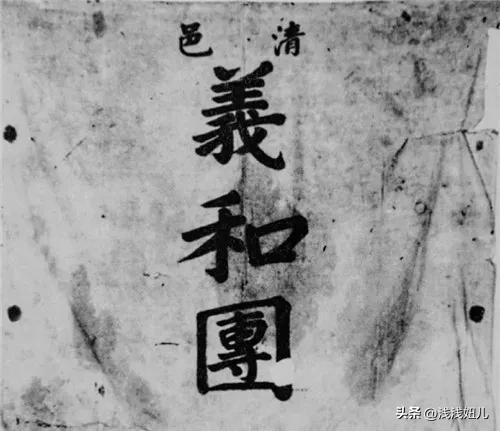 清邑
義和團
头条@浅栈妞儿